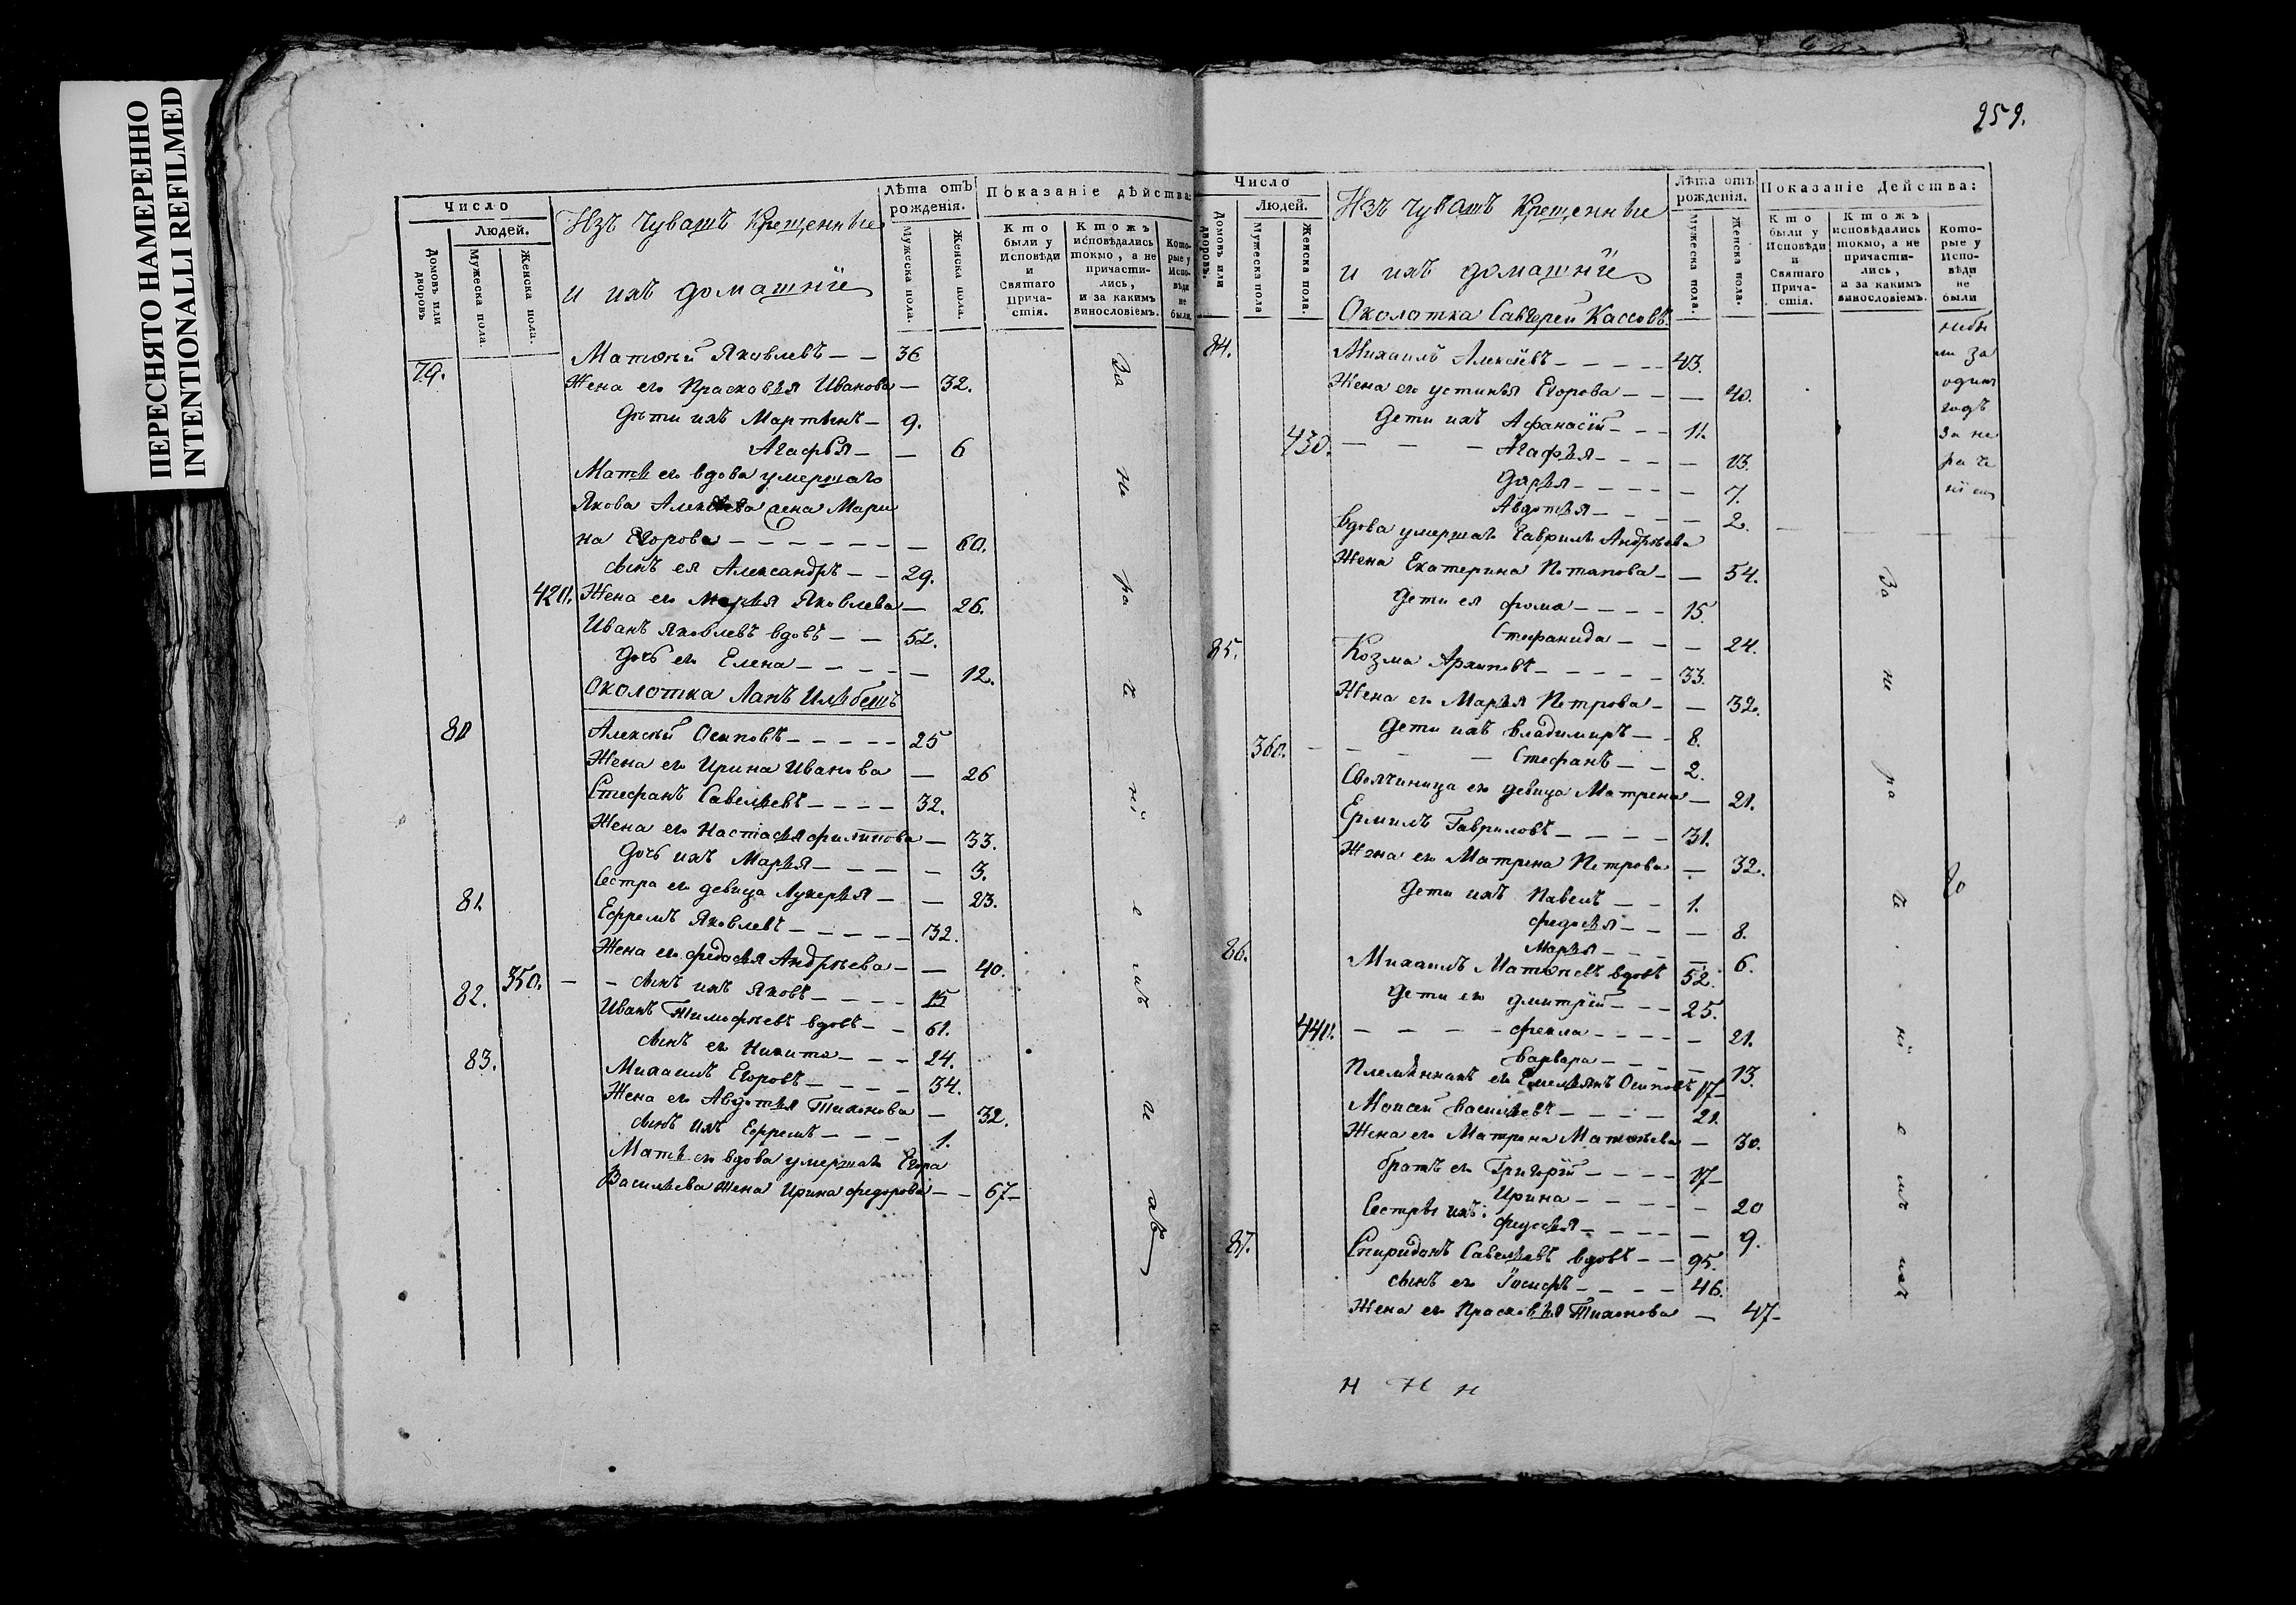 ПЕРЕСНЯТО НАМЕРЕННО
INTENTIONALLI REFILMED
Число
Людей.
Домовъ или дворовъ
Мужеска пола.
Женска пола.
Изъ Чувашъ Крещенные
и ихъ домашнiе
Лѣта отъ рожденiя.
Мужеска пола.
Женска пола.
Показанiе дѣйства:
Кто были у Исповѣди и Святаго Прича-стiя.
Ктожъ исповѣдались токмо, а не причасти-лись, и за какимъ винословiемъ.
Кото-рые у Испо-вѣди не были
79. Матѳѣй Яковлевъ — — 36
Жена его Прасковья Иванова — 32.
Дѣти ихъ Мартынъ — 9.
Агафья — — 6
Мать его вдова умершаго
Якова Алексѣева жена Мари
на Егорова — — — — — — — 60.
сынъ ея Александръ — — 29.
420. Жена его Марья Яковлева — 26.
Иванъ Яковлевъ вдовъ — — 52.
Дочь его Елена — — — — — 12.
Околотка Лапъ Ильбешъ
80 Алексѣй Осиповъ — — — — — 25
Жена его Ирина Иванова — 26
Стефанъ Савельевъ — — — — 32.
Жена его Настасья Филипова — 33.
Дочь ихъ Марья — — — — 3.
Сестра его девица Лукерья — — 23.
81. Ефремъ Яковлевъ — — — — — 32.
Жена его Федосья Андрѣева — — 40.
350. — — сынъ ихъ Яковъ — — — — 15
82. Иванъ Тимофѣевъ вдовъ — — 61.
сынъ его Никита — — — 24.
83. Михаилъ Егоровъ — — — — 34.
Жена его Авдотья Тихонова — 32.
сынъ ихъ Ефремъ — — — 1.
Мать его вдова умершаго Егора
Васильева жена Ирина Федорова — — 67 —
За не ра че нi е мъ и хъ
259.
Число
Людей.
Домовъ или дворовъ.
Мужеска пола
Женска пола.
Изъ Чувашъ Крещенные
и ихъ домашнiе
Околотка Савгерей Кассовъ
Лѣта отъ рожденiя.
Мужеска пола.
Женска пола.
Показанiе Действа:
Кто были у Исповѣди и Святаго Прича-стiя.
Ктожъ исповѣдались токмо, а не причасти-лись, и за какимъ винословiемъ.
Кото-рые у Испо-вѣди не были
84. Михаилъ Алексѣевъ — — — — — 43.
Жена его Устинья Егорова — — — 40.
Дети ихъ Афанасiй — — — 11.
430. — — — Агафья — — — — — 13.
Дарья — — — — — 7.
Авдотья — — — — 2.
Вдова умершаго Гаврилы Андрѣева
Жена Екатерина Потапова — — 54.
Дети ея Фома — — — — 15.
Стефанида — — — 24.
85. Козма Архиповъ — — — — — 33.
Жена его Марья Петрова — — 32.
Дети ихъ Владимиръ — — 8.
360. — — — Стефанъ — — 2.
Своячиница его девица Матрена — 21.
Ермилъ Гавриловъ — — — — 31.
Жена его Матрена Петрова — 32.
Дети ихъ Павелъ — — 1.
Федосья — — — 8.
Марья — — — — 6.
86. Михаилъ Матѳѣевъ вдовъ 52.
Дети его Дмитрiй — — — 25.
440. — — — — Фекла — — — — — 21.
Варвара — — — — 13.
Племянникъ его Емельянъ Осиповъ 17 —
Моисей Васильевъ — — — — 21.
Жена его Матрена Матѳѣева — 30.
братъ его Григорiй — — — — 17 —
Ирина — — — — — 20
Сестры ихъ: Федосья — — — — — 9.
87. Спиридонъ Савельевъ вдовъ — — 95.
сынъ его Iосифъ — — — — 46.
Жена его Прасковья Тихонова — 47 —
За не ра че нi е мъ ихъ
небы
ли за
одинъ
годъ
за не
ра че
нiемъ